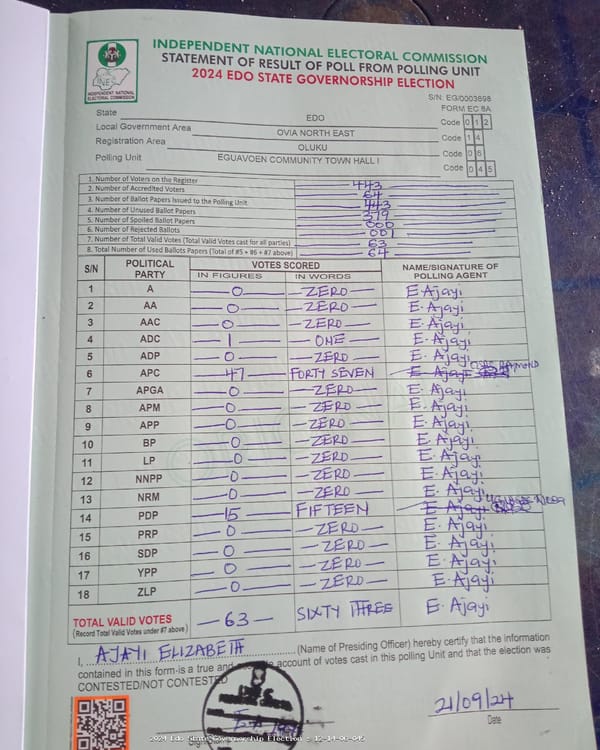 INDEPENDENT NATIONAL ELECTORAL COMMISSION
STATEMENT OF RESULT OF POLL FROM POLLING UNIT
2024 EDO STATE GOVERNORSHIP ELECTION
INDEPENDENT NATIONAL ELECTORAL COMMISSION
S/N: EG/0003698
FORM EC 8A
State EDO Code 0 1 2
Local Government Area OVIA NORTH EAST Code 1 4
Registration Area OLUKU Code 0 6
Polling Unit EGUAVOEN COMMUNITY TOWN HALL I Code 0 4 5
1. Number of Voters on the Register 443
2. Number of Accredited Voters 64
3. Number of Ballot Papers Issued to the Polling Unit 443
4. Number of Unused Ballot Papers 379
5. Number of Spoiled Ballot Papers 000
6. Number of Rejected Ballots 001
7. Number of Total Valid Votes (Total Valid Votes cast for all parties) 63
8. Total Number of Used Ballots Papers (Total of #5 + #6 + #7 above) 64
S/N POLITICAL PARTY VOTES SCORED IN FIGURES IN WORDS NAME/SIGNATURE OF POLLING AGENT
1 A 0 ZERO E. Ajayi
2 AA 0 ZERO E. Ajayi
3 AAC 0 ZERO E. Ajayi
4 ADC 1 ONE E. Ajayi
5 ADP 0 ZERO E. Ajayi
6 APC 47 FORTY SEVEN E Ajayi
7 APGA 0 ZERO E. Ajayi
8 APM 0 ZERO E. Ajayi
9 APP 0 ZERO E. Ajayi
10 BP 0 ZERO E. Ajayi
11 LP 0 ZERO E. Ajayi
12 NNPP 0 ZERO E. Ajayi
13 NRM 0 ZERO E. Ajayi
14 PDP 15 FIFTEEN E Ajayi
15 PRP 0 ZERO E. Ajayi
16 SDP 0 ZERO E. Ajayi
17 YPP 0 ZERO E. Ajayi
18 ZLP 0 ZERO E. Ajayi
TOTAL VALID VOTES 63 SIXTY THREE E. Ajayi
(Record Total Valid Votes under #7 above)
I, AJAYI ELIZABETH (Name of Presiding Officer) hereby certify that the information
contained in this form is a true and account of votes cast in this polling Unit and that the election was
CONTESTED/NOT CONTESTED
21/09/24
Date
2024 Edo State Governorship Election : 12-14-06-045